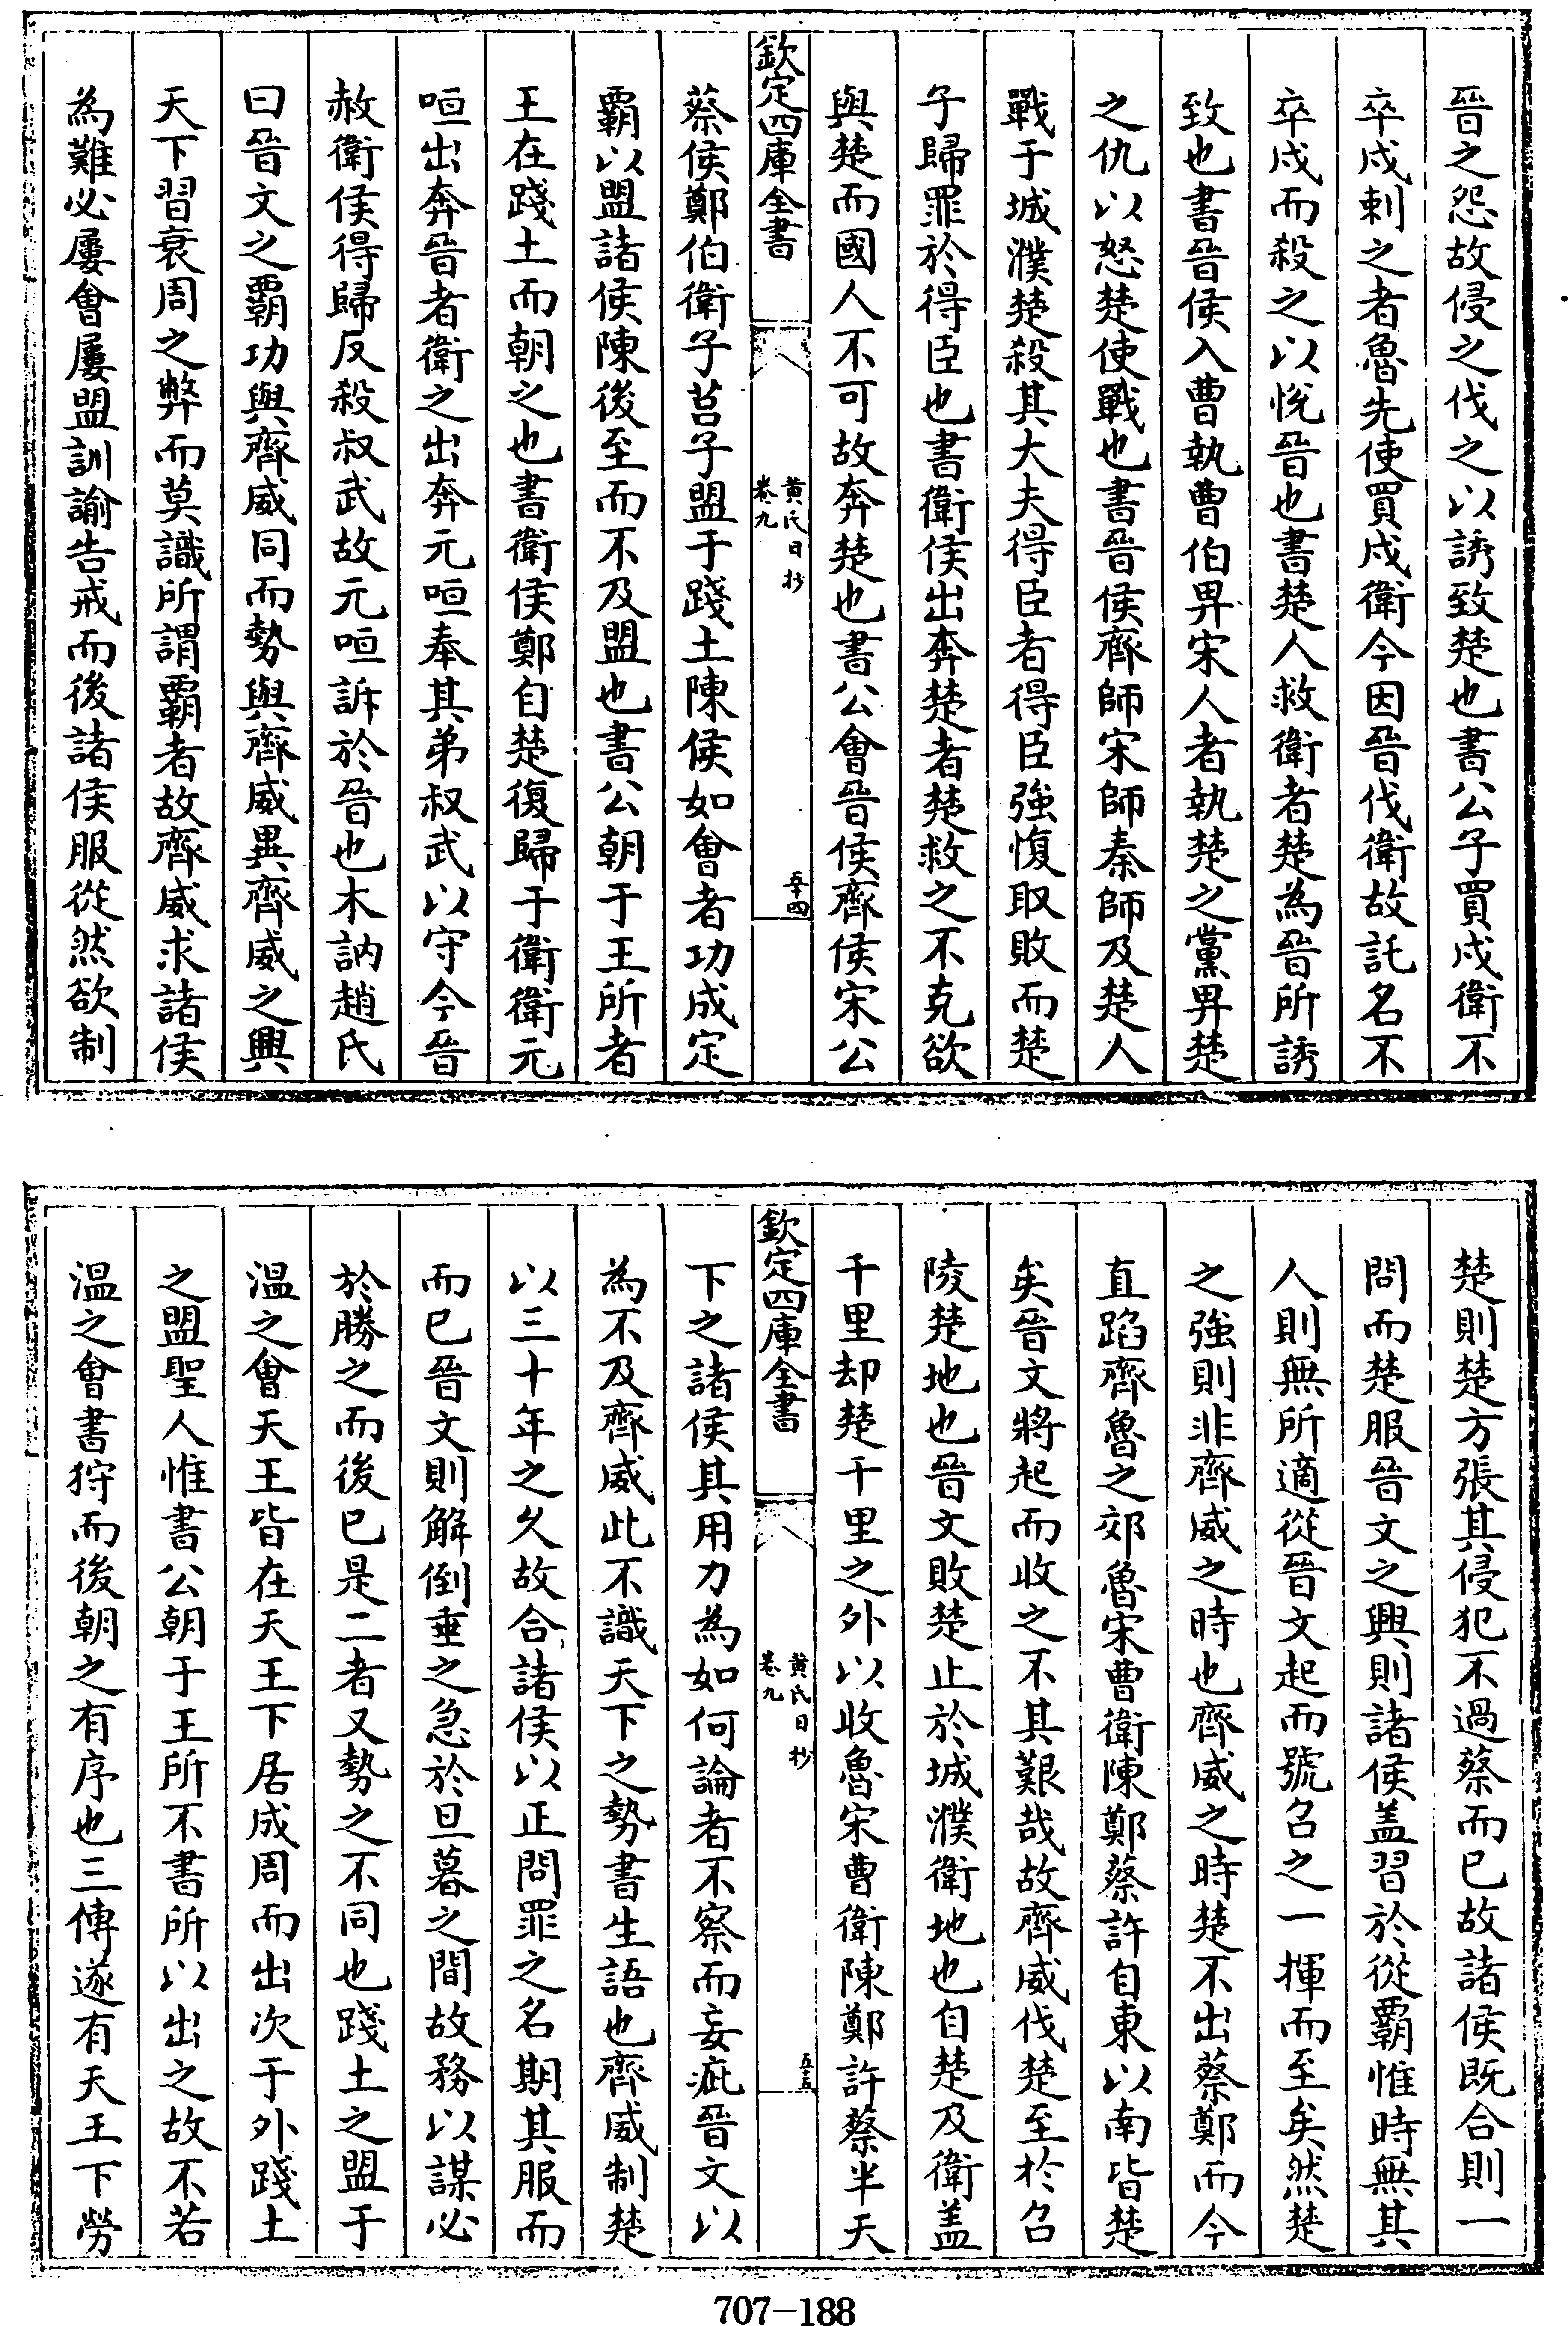 晉之怨故侵之伐之以誘致楚也書公子買戍衛不
卒戍刺之者魯先使買戍衛今因晉伐衛故託名不
卒戍而殺之以悅晉也書楚人救衛者楚為晉所誘
致也書晉侯入曹執曹伯畀宋人者執楚之黨畀楚
之仇以怒楚使戰也書晉侯齊師宋師秦師及楚人
戰于城濮楚殺其大夫得臣者得臣強愎取敗而楚
子歸罪於得臣也書衛侯出奔楚者楚救之不克欲
與楚而國人不可故奔楚也書公會晉侯齊侯宋公
欽定四庫全書
黃氏日抄
卷九
五十四
蔡侯鄭伯衛子莒子盟于踐土陳侯如會者功成定
霸以盟諸侯陳後至而不及盟也書公朝于王所者
王在踐土而朝之也書衛侯鄭自楚復歸于衛衛元
咺出奔晉者衛之出奔元咺奉其弟叔武以守今晉
赦衛侯得歸反殺叔武故元咺訴於晉也木訥趙氏
曰晉文之霸功與齊威同而勢與齊威異齊威之興
天下習衰周之弊而莫識所謂霸者故齊威求諸侯
為難必屢會屢盟訓諭告戒而後諸侯服從然欲制
楚則楚方張其侵犯不過蔡而已故諸侯既合則一
問而楚服晉文之興則諸侯盖習於從霸惟時無其
人則無所適從晉文起而號召之一揮而至矣然楚
之強則非齊威之時也齊威之時楚不出蔡鄭而今
直蹈齊魯之郊魯宋曹衛陳鄭蔡許自東以南皆楚
矣晉文將起而收之不其艱哉故齊威伐楚至於召
陵楚地也晉文敗楚止於城濮衛地也自楚及衛盖
千里却楚千里之外以收魯宋曹衛陳鄭許蔡半天
欽定四庫全書
黃氏日抄
卷九
五十五
下之諸侯其用力為如何論者不察而妄疵晉文以
為不及齊威此不識天下之勢書生語也齊威制楚
以三十年之久故合諸侯以正問罪之名期其服而
而已晉文則解倒垂之急於旦暮之間故務以謀必
於勝之而後已是二者又勢之不同也踐土之盟于
溫之會天王皆在天王下居成周而出次于外踐土
之盟聖人惟書公朝于王所不書所以出之故不若
溫之會書狩而後朝之有序也三傳遂有天王下勞
707-188